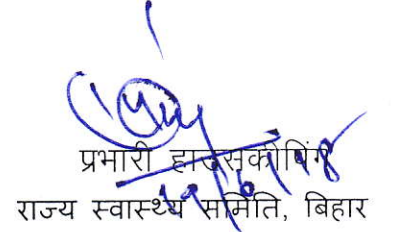 प्रभारी हाउसकीपिंग
राज्य स्वास्थ्य समिति, बिहार